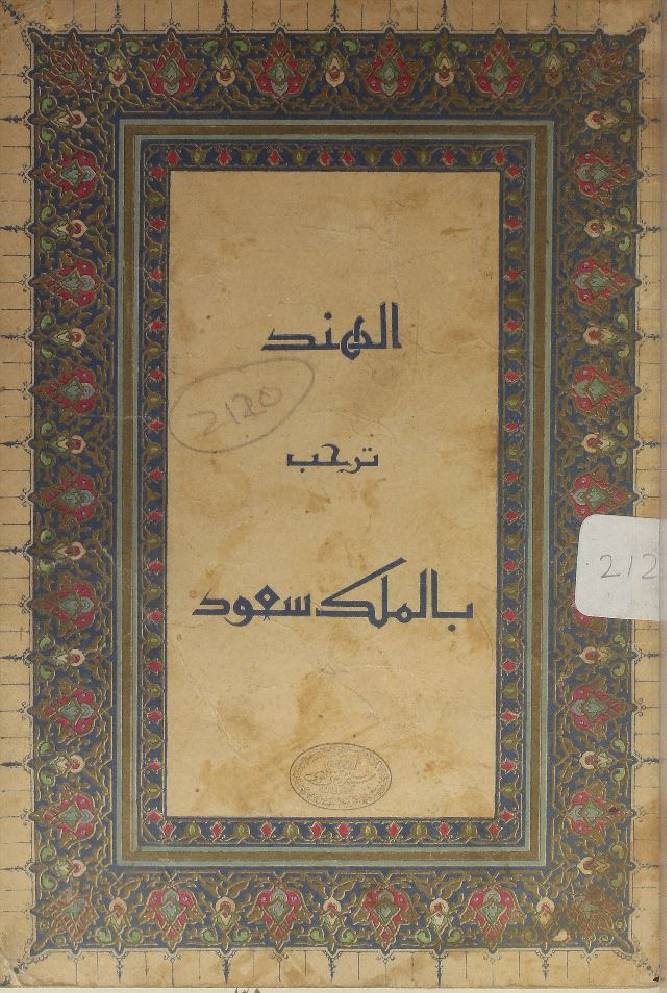 الهند
2120
ترحب
212
بالملك سعود